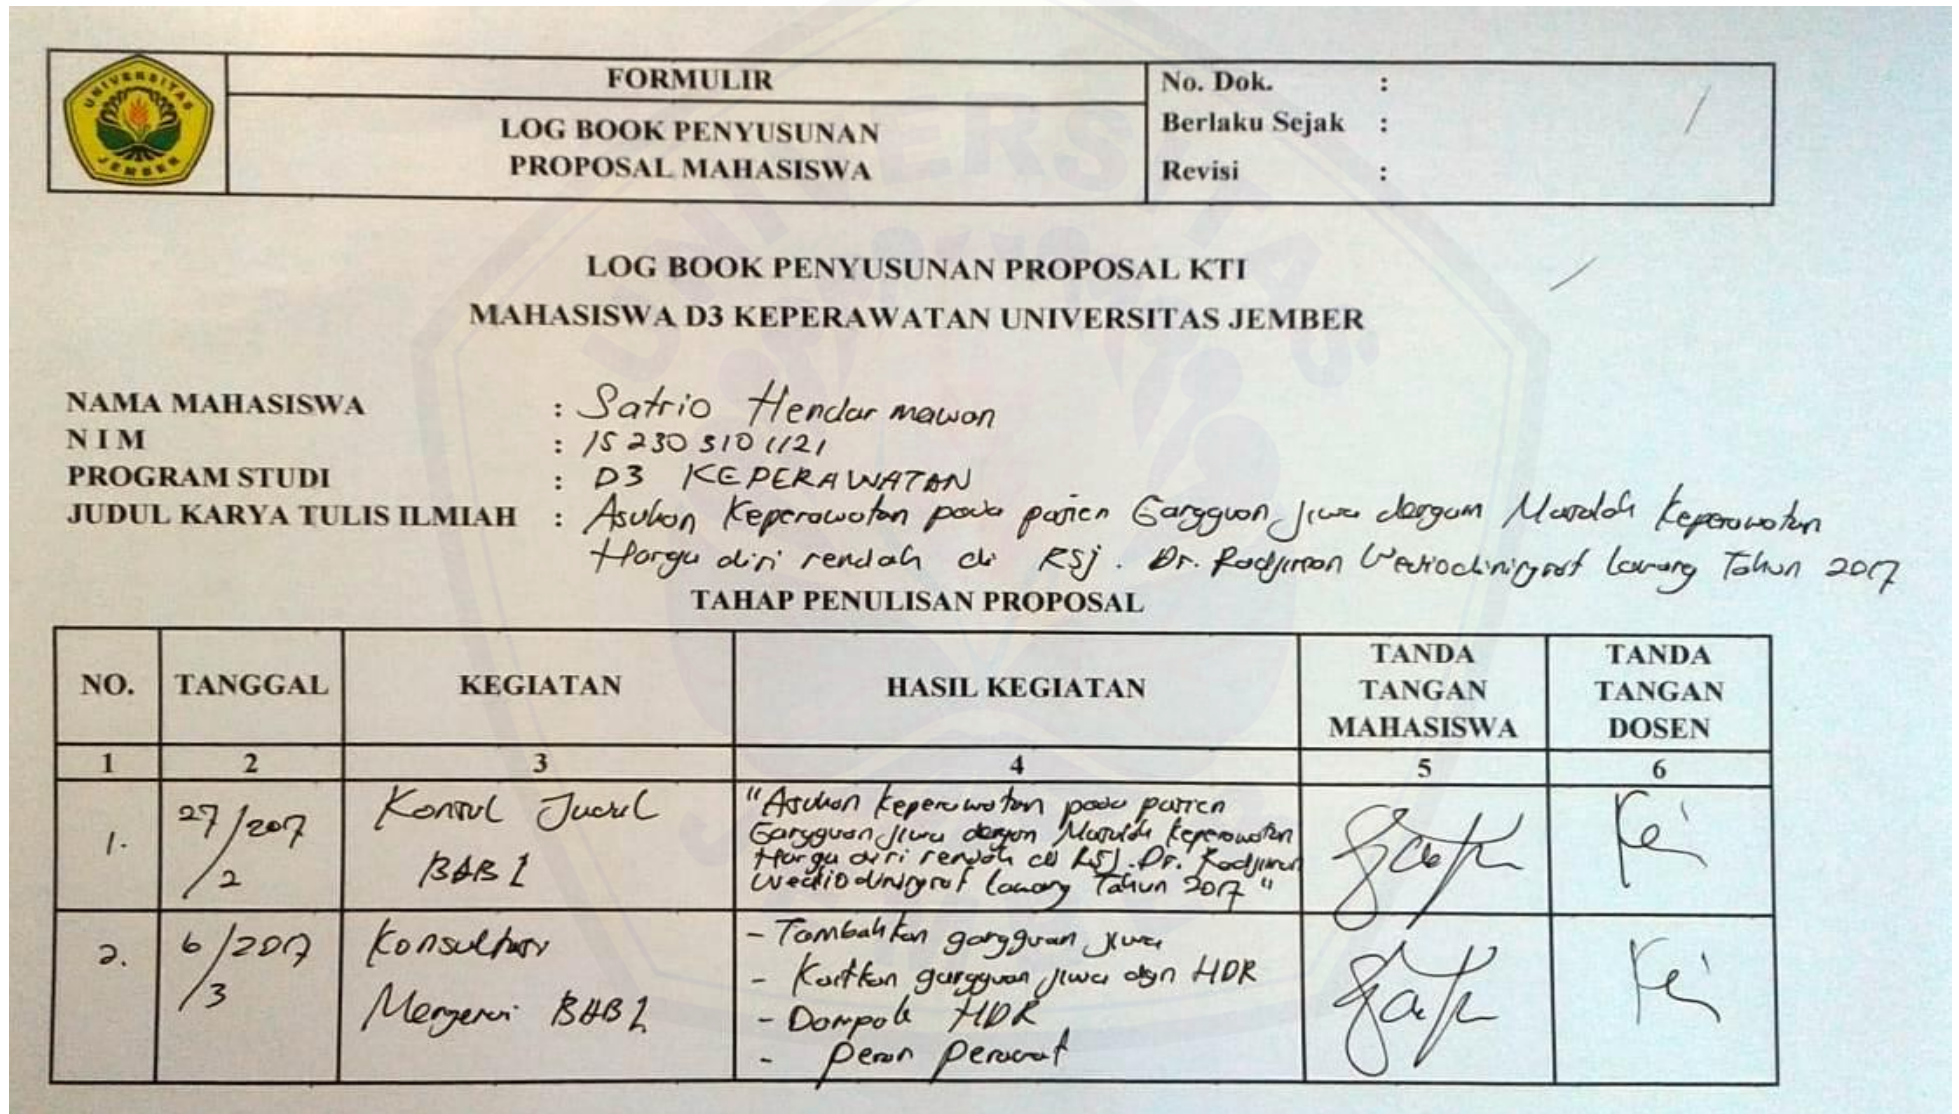 UNIVERSITAS
JEMBER
FORMULIR
LOG BOOK PENYUSUNAN
PROPOSAL MAHASISWA
No. Dok. :
Berlaku Sejak :
Revisi :
LOG BOOK PENYUSUNAN PROPOSAL KTI
MAHASISWA D3 KEPERAWATAN UNIVERSITAS JEMBER
NAMA MAHASISWA : Satrio Hendarmawan
N I M : 152303101121
PROGRAM STUDI : D3 KEPERAWATAN
JUDUL KARYA TULIS ILMIAH : Asuhan Keperawatan pada pasien Gangguan Jiwa dengan Masalah Keperawatan
Harga diri rendah di RSJ. Dr. Radjiman Wediodiningrat Lawang Tahun 2017
TAHAP PENULISAN PROPOSAL
NO. TANGGAL KEGIATAN HASIL KEGIATAN TANDA TANGAN MAHASISWA TANDA TANGAN DOSEN
1 2 3 4 5 6
1. 27/2017/2 Konsul Judul BAB 1
"Asuhan Keperawatan pada pasien
Gangguan Jiwa dengan Masalah Keperawatan
Harga diri rendah di RSJ. Dr. Radjiman
Wediodiningrat Lawang Tahun 2017"
2. 6/2017/3 Konsultasi Mengenai BAB 1
- Tambahkan gangguan jiwa
- Kaitkan gangguan jiwa dgn HDR
- Dampak HDR
- Peran perawat